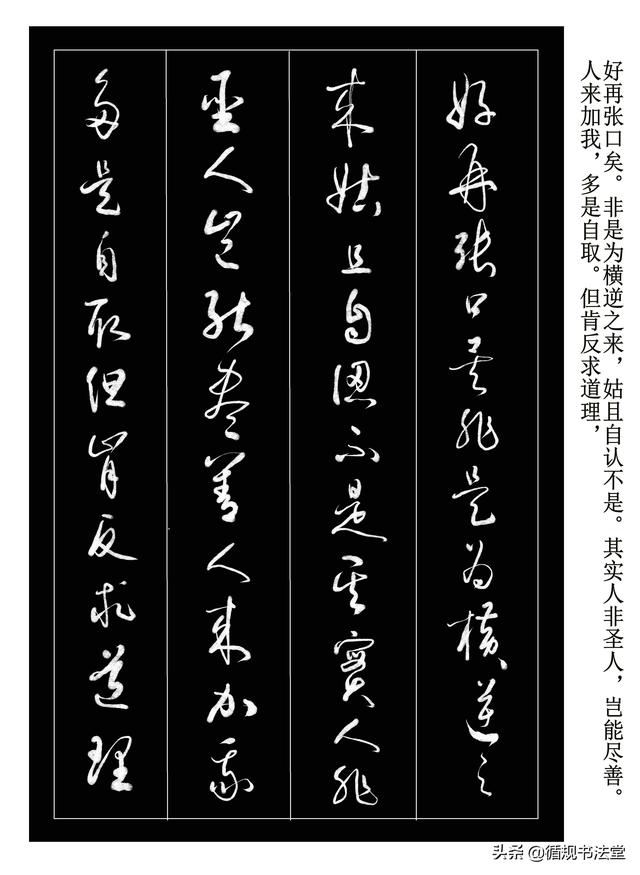 好再张口矣。非是为横逆之来，姑且自认不是。其实人非圣人，岂能尽善。
人来加我，多是自取。但肯反求道理，
好再張口矣非是为橫逆之
来姑且自認不是其實人非
聖人豈能盡善人来加我
多是自取但肯反求道理
头条 @循规书法堂